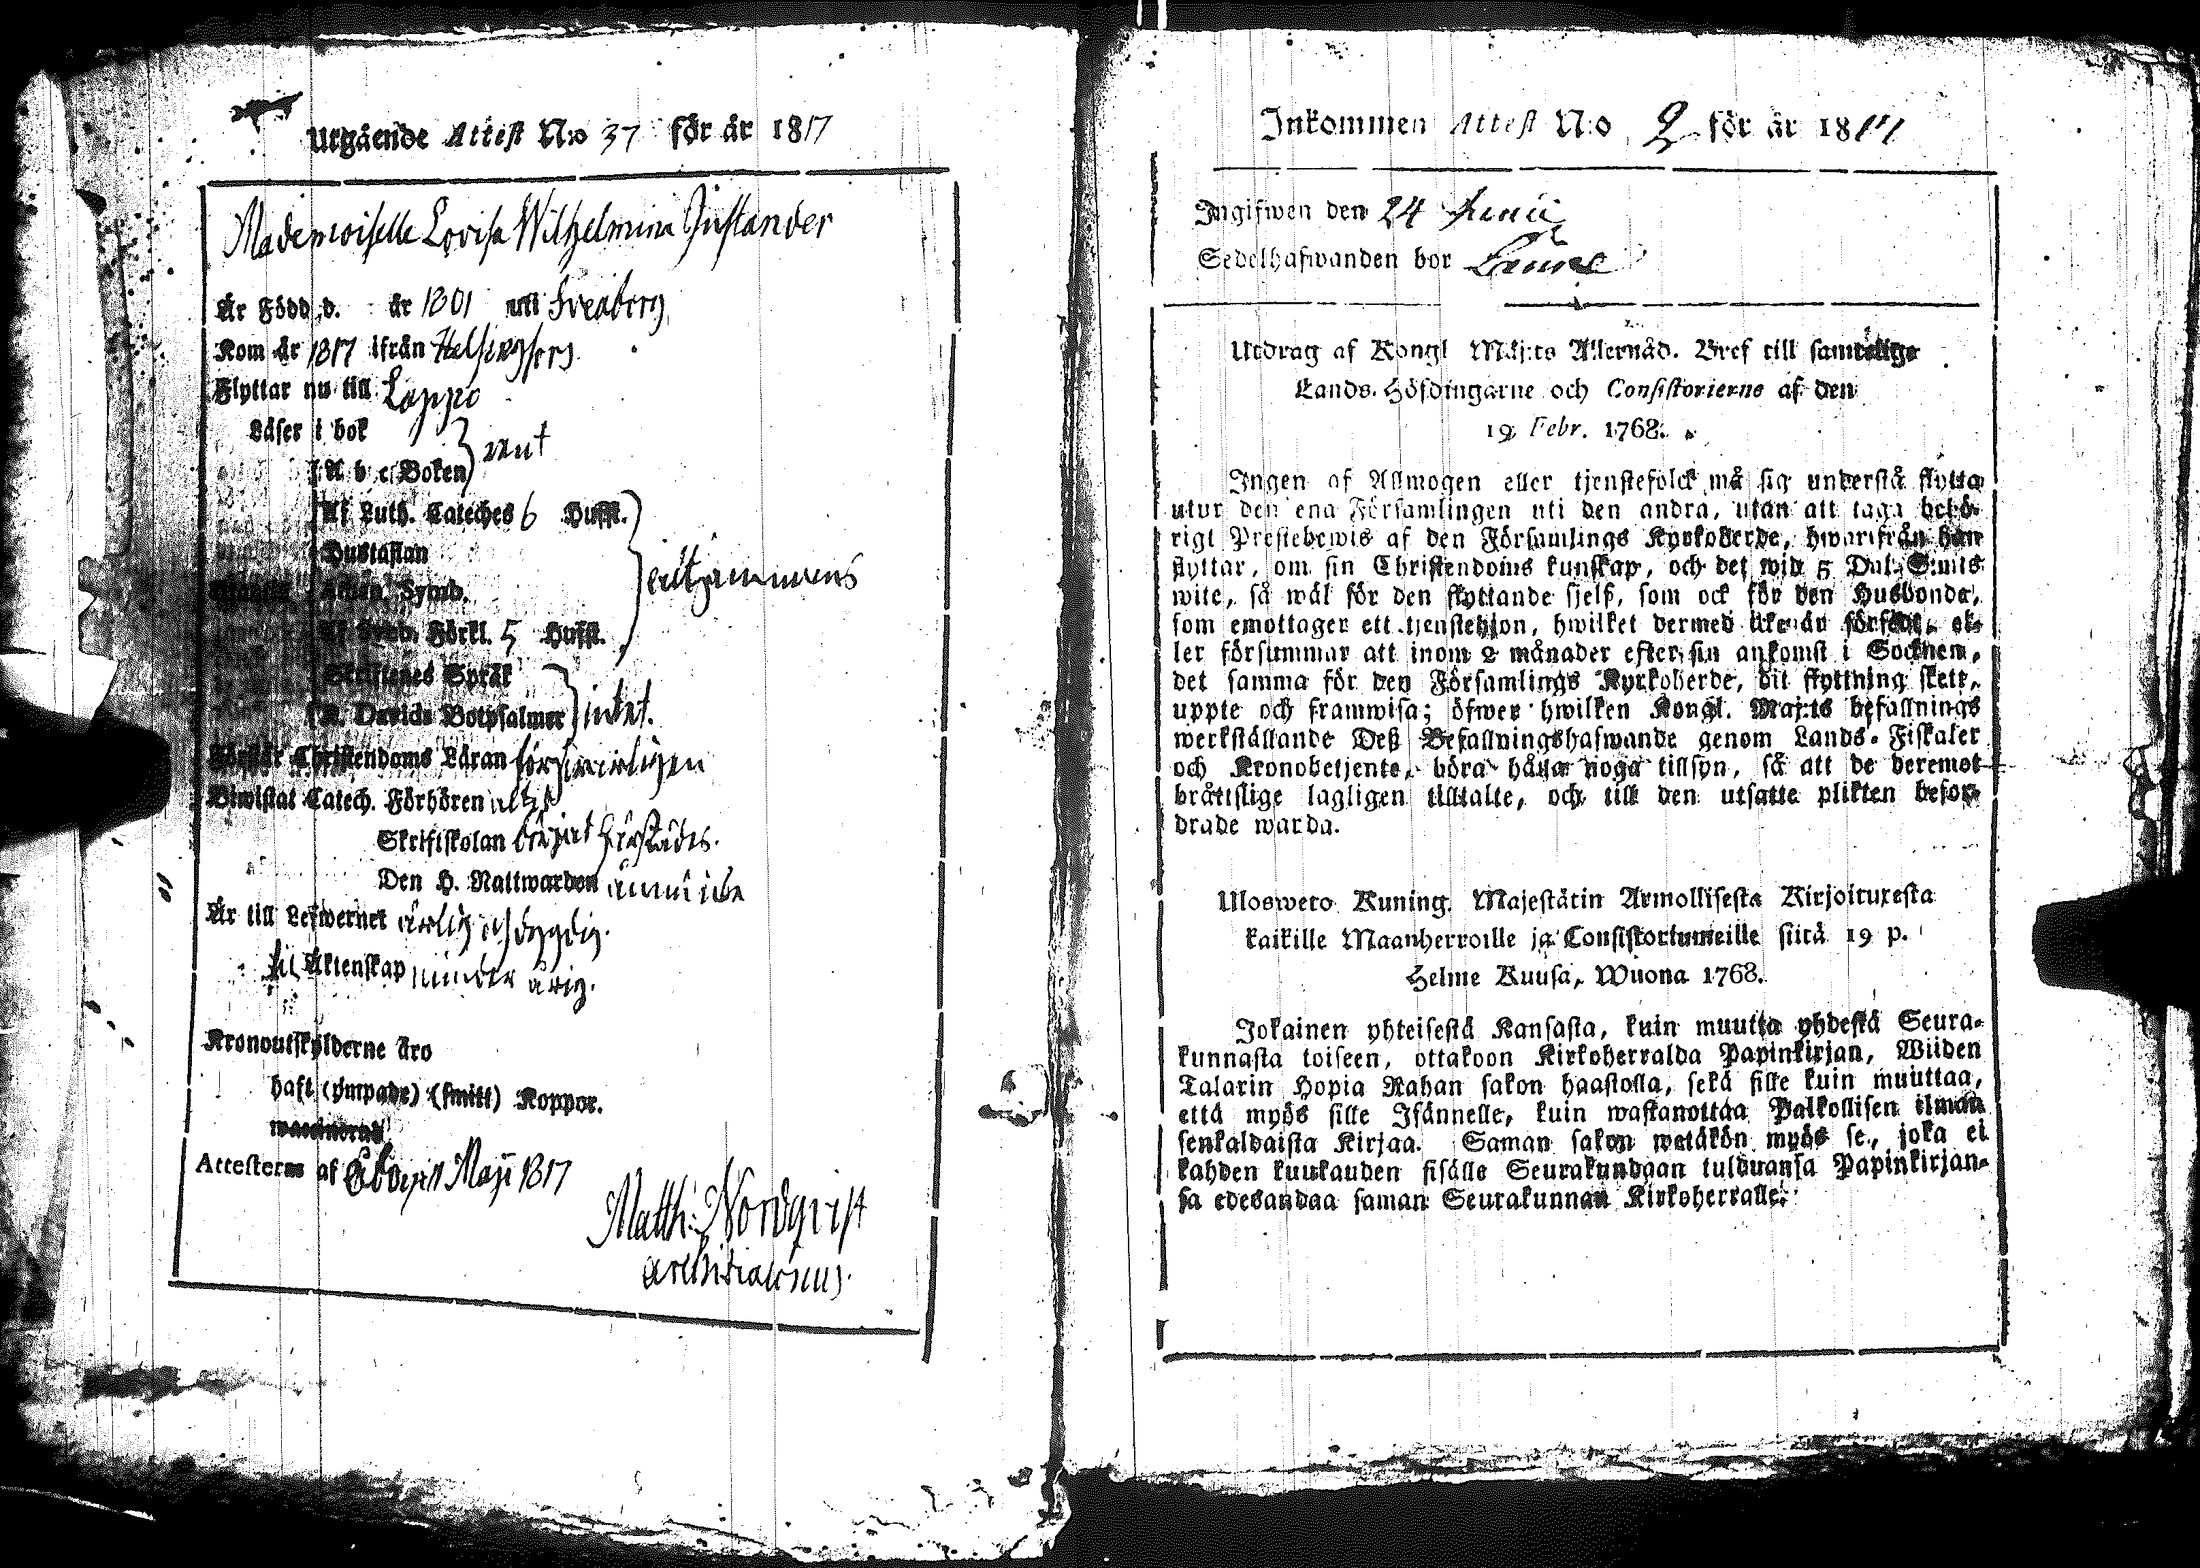 Utgående Attest N:o 37 för år 1817
Mademoiselle Lovisa Wilhelmina Gustander
Är Född d. år 1801 uti Sveaborg
Kom år 1817 ifrån Helsingfors
Flyttar nu till Loppo
Läser i bok
A b c Boken } rent
Af Luth. Cateches 6 Hufst.
Hustaflan
Athan. Symb.
Af Förkl. 5 Hufst.
Skriftenes Språk
K. Davids Botpsalmer } intet.
Förstår Christendoms Läran försvarligen
Biwistat Catech. Förhören
Skriftskolan börjat härstädes.
Den H. Nattwarden ännu icke
Är till Lefwernet ärlig och dygdig.
til Äktenskap minder årig.
Kronoutskylderne äro
haft (ympade) (smitt) Koppor.
Attesteras af Maji 1817
Matth: Nordqvist
Inkommen Attest N:o 2 för år 1817
Ingifwen den 24 Junii
Sedelhafwanden bor
Utdrag af Kongl Maj:ts Allernåd. Bref till samtelige
Lands-Höfdingarne och Consistorierne af den
19 Febr. 1768.
Ingen af Allmogen eller tjenstefolck må sig understå flytta
utur den ena Församlingen uti den andra, utan att taga behö-
rigt Prestebewis af den Församlings Kyrkoherde, hwarifrån han
flyttar, om sin Christendoms kunskap, och det wid 5 Dal. S:mts
wite, så wäl för den flyttande sjelf, som ock för den Husbonde,
som emottager ett tjenstehjon, hwilket dermed icke är försedt, el-
ler försummar att inom 2 månader efter sin ankomst i Socknen,
det samma för den Församlings Kyrkoherde, dit flyttning skett,
uppte och framwisa; öfwer hwilken Kongl. Maj:ts befallnings
werkställande Deß Befallningshafwande genom Lands-Fiskaler
och Kronobetjente, böra hålla noga tillsyn, så att de deremot
bråttslige lagligen tilltalte, och till den utsatte plikten befor-
drade warda.
Ulosweto Kuning. Majestätin Armollisesta Kirjoituxesta
kaikille Maanherroille ja Consistoriumeille siitä 19 p.
Helme Kuusa, Wuona 1768.
Jokainen yhteisestä Kansasta, kuin muutta yhdestä Seura-
kunnasta toiseen, ottakoon Kirkoherralda Papinkirjan, Wiiden
Talarin Hopia Rahan sakon haastolla, sekä sille kuin muuttaa,
että myös sille Isännelle, kuin wastanottaa Palkollisen ilman
senkaldaista Kirjaa. Saman sakon wetäkön myös se, joka ei
kahden kuukauden sisälle Seurakundaan tulduansa Papinkirjan-
sa edesandaa saman Seurakunnan Kirkoherralle.